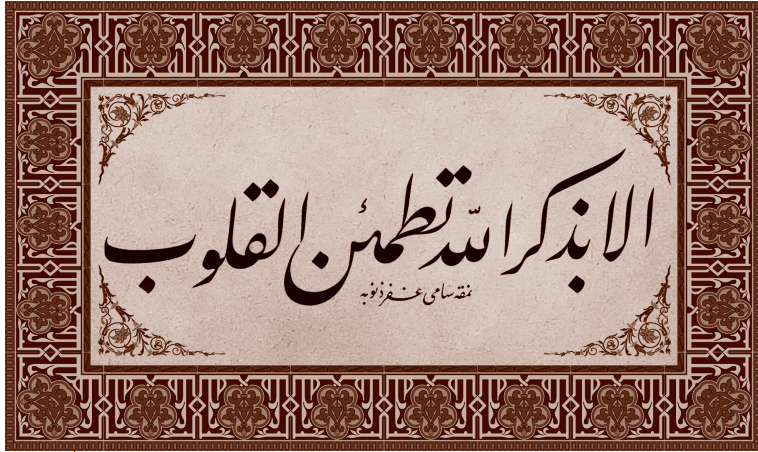 الا بذکر اللّه تطمئن القلوب
نمقه سامی غفر ذنوبه